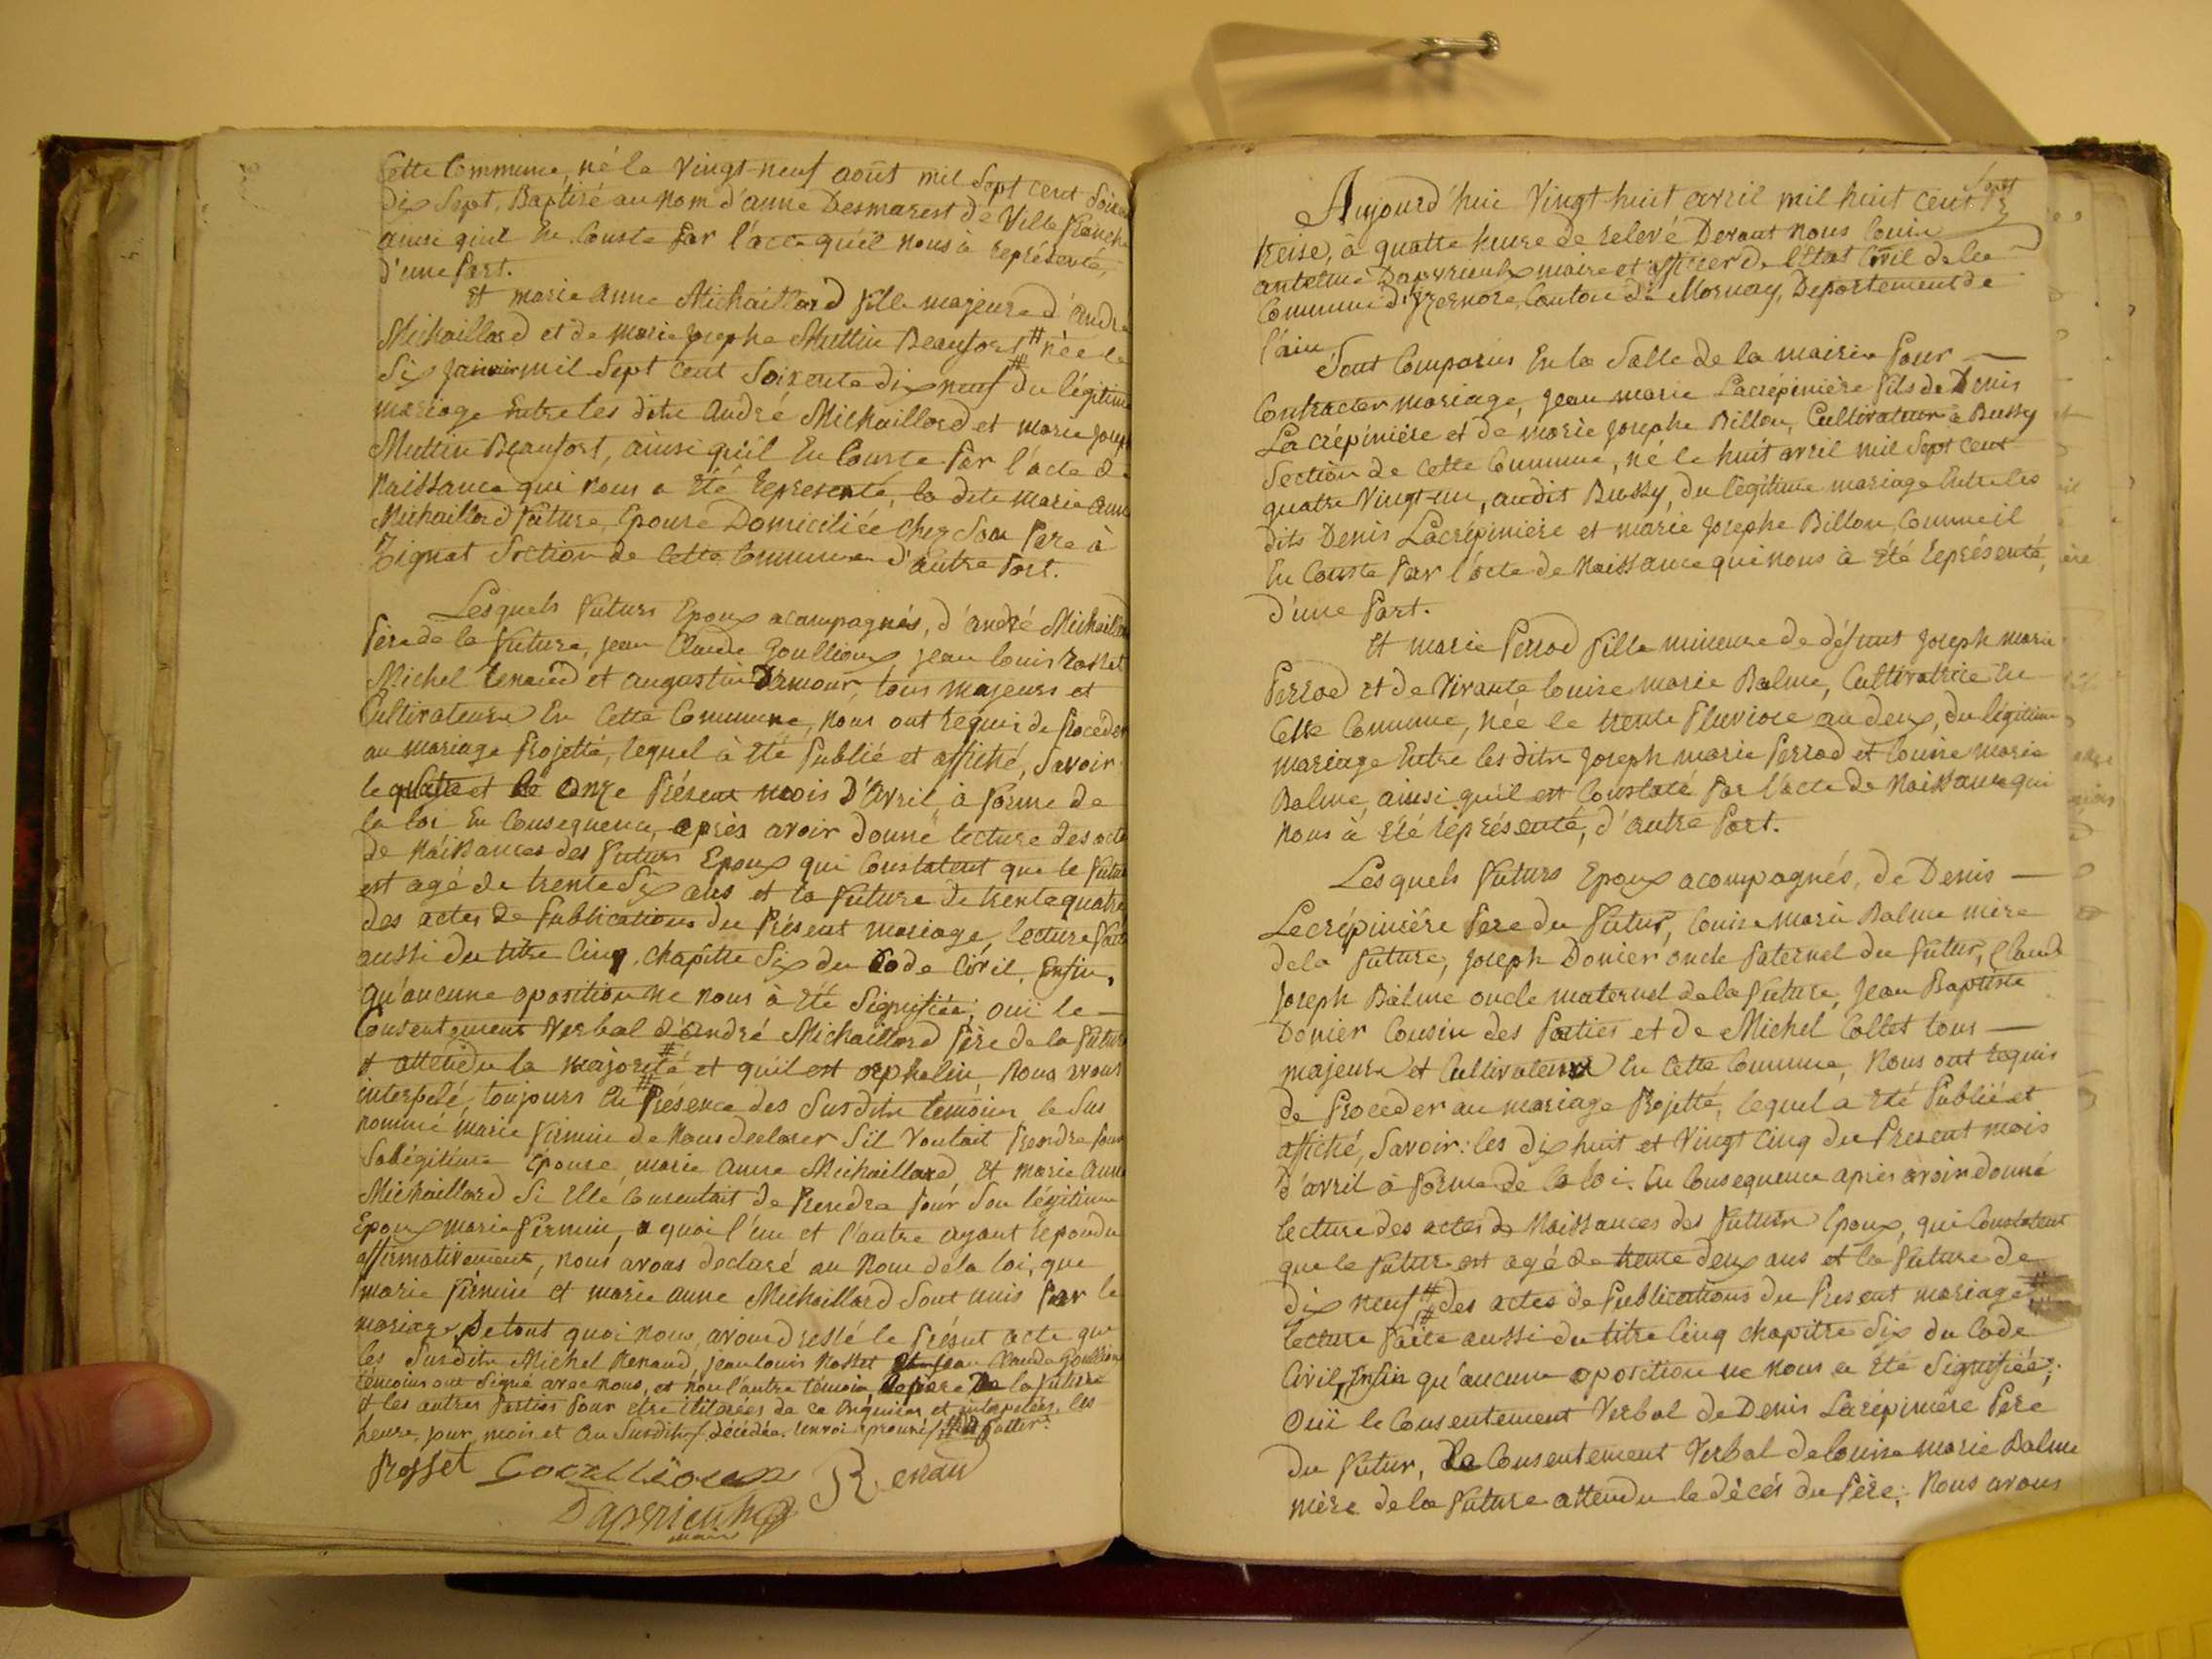 Cette Commune, né le Vingt-neuf août mil Sept cent Soixan
dix Sept, Baptisé au Nom d'anne Desmarest de Ville franche
ainsi qu'il En Conste Par l'acte qu'il nous à représenté,
d'une Part.
Et marie anne Michaillard fille majeure d'andré
Michaillard et de marie josephe Muttin Beaufort # née le
Six janvier mil Sept cent Soixente dix neuf # du légitime
mariage Entre les dits André Michaillard et marie joseph
Muttin Beaufort, ainsi qu'il En Conste Par l'acte de
Naissance qui nous a Eté Représenté, la dite marie anne
Michaillard future Epouse Domiciliée chez Son Pere à
Tignat Section de Cette Commune d'autre Part.
Lesquels futurs Epoux acompagnés, d'andré Michaillard
Père de la future, jean Claude Goullioux, jean louis Rosset
Michel Renaud et augustin D'amour, tous majeurs et
Cultivateurs En Cette Commune, nous ont requis de Procéder
au mariage Projetté, lequel à Eté Publié et affiché, Savoir
le quatre et le onze Présent mois D'Avril, à forme de
la loi. En Consequence, après avoir donné lecture des acte
de Naissances des futurs Epoux qui Constatent que le futur
est agé de trente Six ans et la future de trente quatre
des actes de Publications du Présent mariage, lecture faite
aussi du titre Cinq, chapitre Six du Code Civil, Enfin,
qu'aucune oposition ne nous à Eté Signifiée; ouï le
Consentement Verbal d'andré Michaillard Père de la future
& attendu la majorité # et qu'il est orphelin, Nous avons
interpelé, toujours En # Présence des Susdits temoins le Sus
nommé marie firmin de Nous declarer S'il Voulait Prendre Pour
Sa légitime Epouse marie anne Michaillard, Et marie anne
Michaillard Si Elle Consentait de Prendre Pour Son légitime
Epoux marie firmin, a quoi l'un et l'autre ayant Répondu
affirmativement, nous avons declaré au Nom de la loi, que
marie firmin et marie anne Michaillard Sont unis Par le
mariage, De tout quoi nous avons dressé le Présent acte que
les Susdits Michel Renaud, jean louis Rosset jean Claude Goullioux
témoins ont Signé avec nous, et non l'autre témoin le père De la future
& les autres Parties Pour etre ilitérées de ce Enquises et interpelées, les
heure, jour, mois et an Susdits décédée. renvoi aprouvé
Rosset Goullioux Renaud
Dapvrieulx
maire
Aujourd'hui Vingt huit avril mil huit cent
treise, à quatre heure de relevé Devant Nous louis
antelme Dapvrieulx maire et officier de l'Etat Civil de la
Commune d'Izernore, Canton de Mornay, Departement de
l'ain,
Sont Comparus En la Salle de la mairie Pour —
Contracter mariage, jean marie Lacrépinière fils de Denis
Lacrépinière et de marie josephe Billon, Cultivateur à Bussy
Section de Cette Commune, né le huit avril mil Sept cent
quatre Vingt-un, audit Bussy, du légitime mariage Entre les
dits Denis Lacrépinière et marie josephe Billon, Comme il
En Conste Par l'acte de Naissance qui nous à Eté Représenté,
d'une Part.
Et marie Perrod fille mineure de défunt Joseph marie
Perrod et de Vivante louise marie Balme, Cultivatrice En
Cette Commune, née le trente Pluviose an deux, du légitime
mariage Entre les dits Joseph marie Perrod et louise marie
Balme, ainsi qu'il est Constaté Par l'acte de Naissance qui
nous à Eté réprésenté, d'autre Part.
Lesquels futurs Epoux acompagnés, de Denis —
Lacrépinière Pere du futur, louise marie Balme mère
de la future, Joseph Donier oncle Paternel du futur, Claude
Joseph Balme oncle maternel de la future, Jean Baptiste
Donier Cousin des Parties et de Michel Collet tous —
majeurs et Cultivateurs En Cette Commune, Nous ont requis
de Procéder au mariage Projetté, lequel a Eté Publié et
affiché, Savoir: les dix huit et Vingt Cinq du Present mois
d'avril à forme de la loi. En Consequence après avoir donné
lecture des actes de Naissances des futurs Epoux, qui Constatent
que le futur est agé de trente deux ans et la future de
dix neuf # des actes de Publications du Present mariage #
lecture faite aussi du titre Cinq chapitre Six du Code
Civil, Enfin qu'aucune oposition ne nous a Eté Signifiée;
Ouï le Consentement Verbal de Denis Lacrépinière Pere
du futur, le Consentement Verbal de louise marie Balme
mère de la future attendu le décés du Père; Nous avons